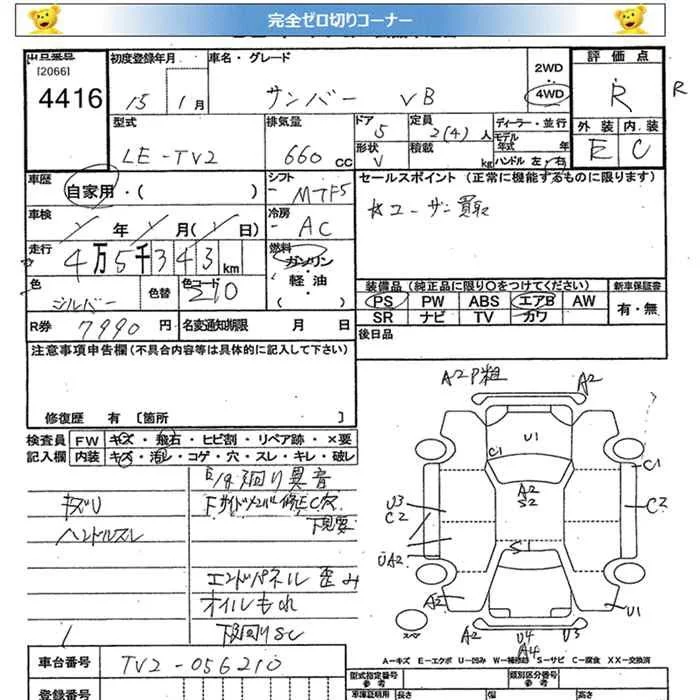 完全ゼロ切りコーナー
出品番号
[2066]
4416
初度登録年月
15 1月
車名・グレード
サンバー VB
2WD
4WD
評価点
R
R
型式
LE-TV2
排気量
660 cc
ドア
5
定員
2(4)人
ディーラー・並行
モデル年式 年
形状
V
積載 kg
ハンドル 左・右
外装 内装
E C
車歴
自家用・( )
シフト
MTF5
セールスポイント (正常に機能するものに限ります)
ユーザー買取
車検
年 月( 日)
冷房
AC
走行
4万5千343km
燃料
ガソリン
軽油
・( )
色
シルバー
色替
色コード
210
装備品 (純正品に限り〇をつけてください)
新車保証書
PS PW ABS エアB AW
有・無
SR ナビ TV カワ
R券 7990円
名変通知期限 月 日
後日品
注意事項申告欄(不具合内容等は具体的に記入して下さい)
修復歴 有 [箇所 ]
検査員 FW キズ・飛石・ヒビ割・リペア跡・×要
記入欄 内装 キズ・汚レ・コゲ・穴・スレ・キレ・破レ
E/G廻り異音
キズU
Fサイドメンバー修正C穴
下見要
ハンドルスレ
エンドパネル歪み
オイルもれ
下廻りSC
A2P粗
A2
U1
C1
C1
A2
S2
U3
C2
C2
S1
UA2
A2
U1
スペア
A2
U4
U3
A4
A-キズ E-エクボ U-凹み W-補修跡 S-サビ C-腐食 XX-交換済
車台番号 TV2-056210
型式指定番号
参考
類別区分番号
参考
登録番号
車庫証明用
参考
長さ
幅
高さ